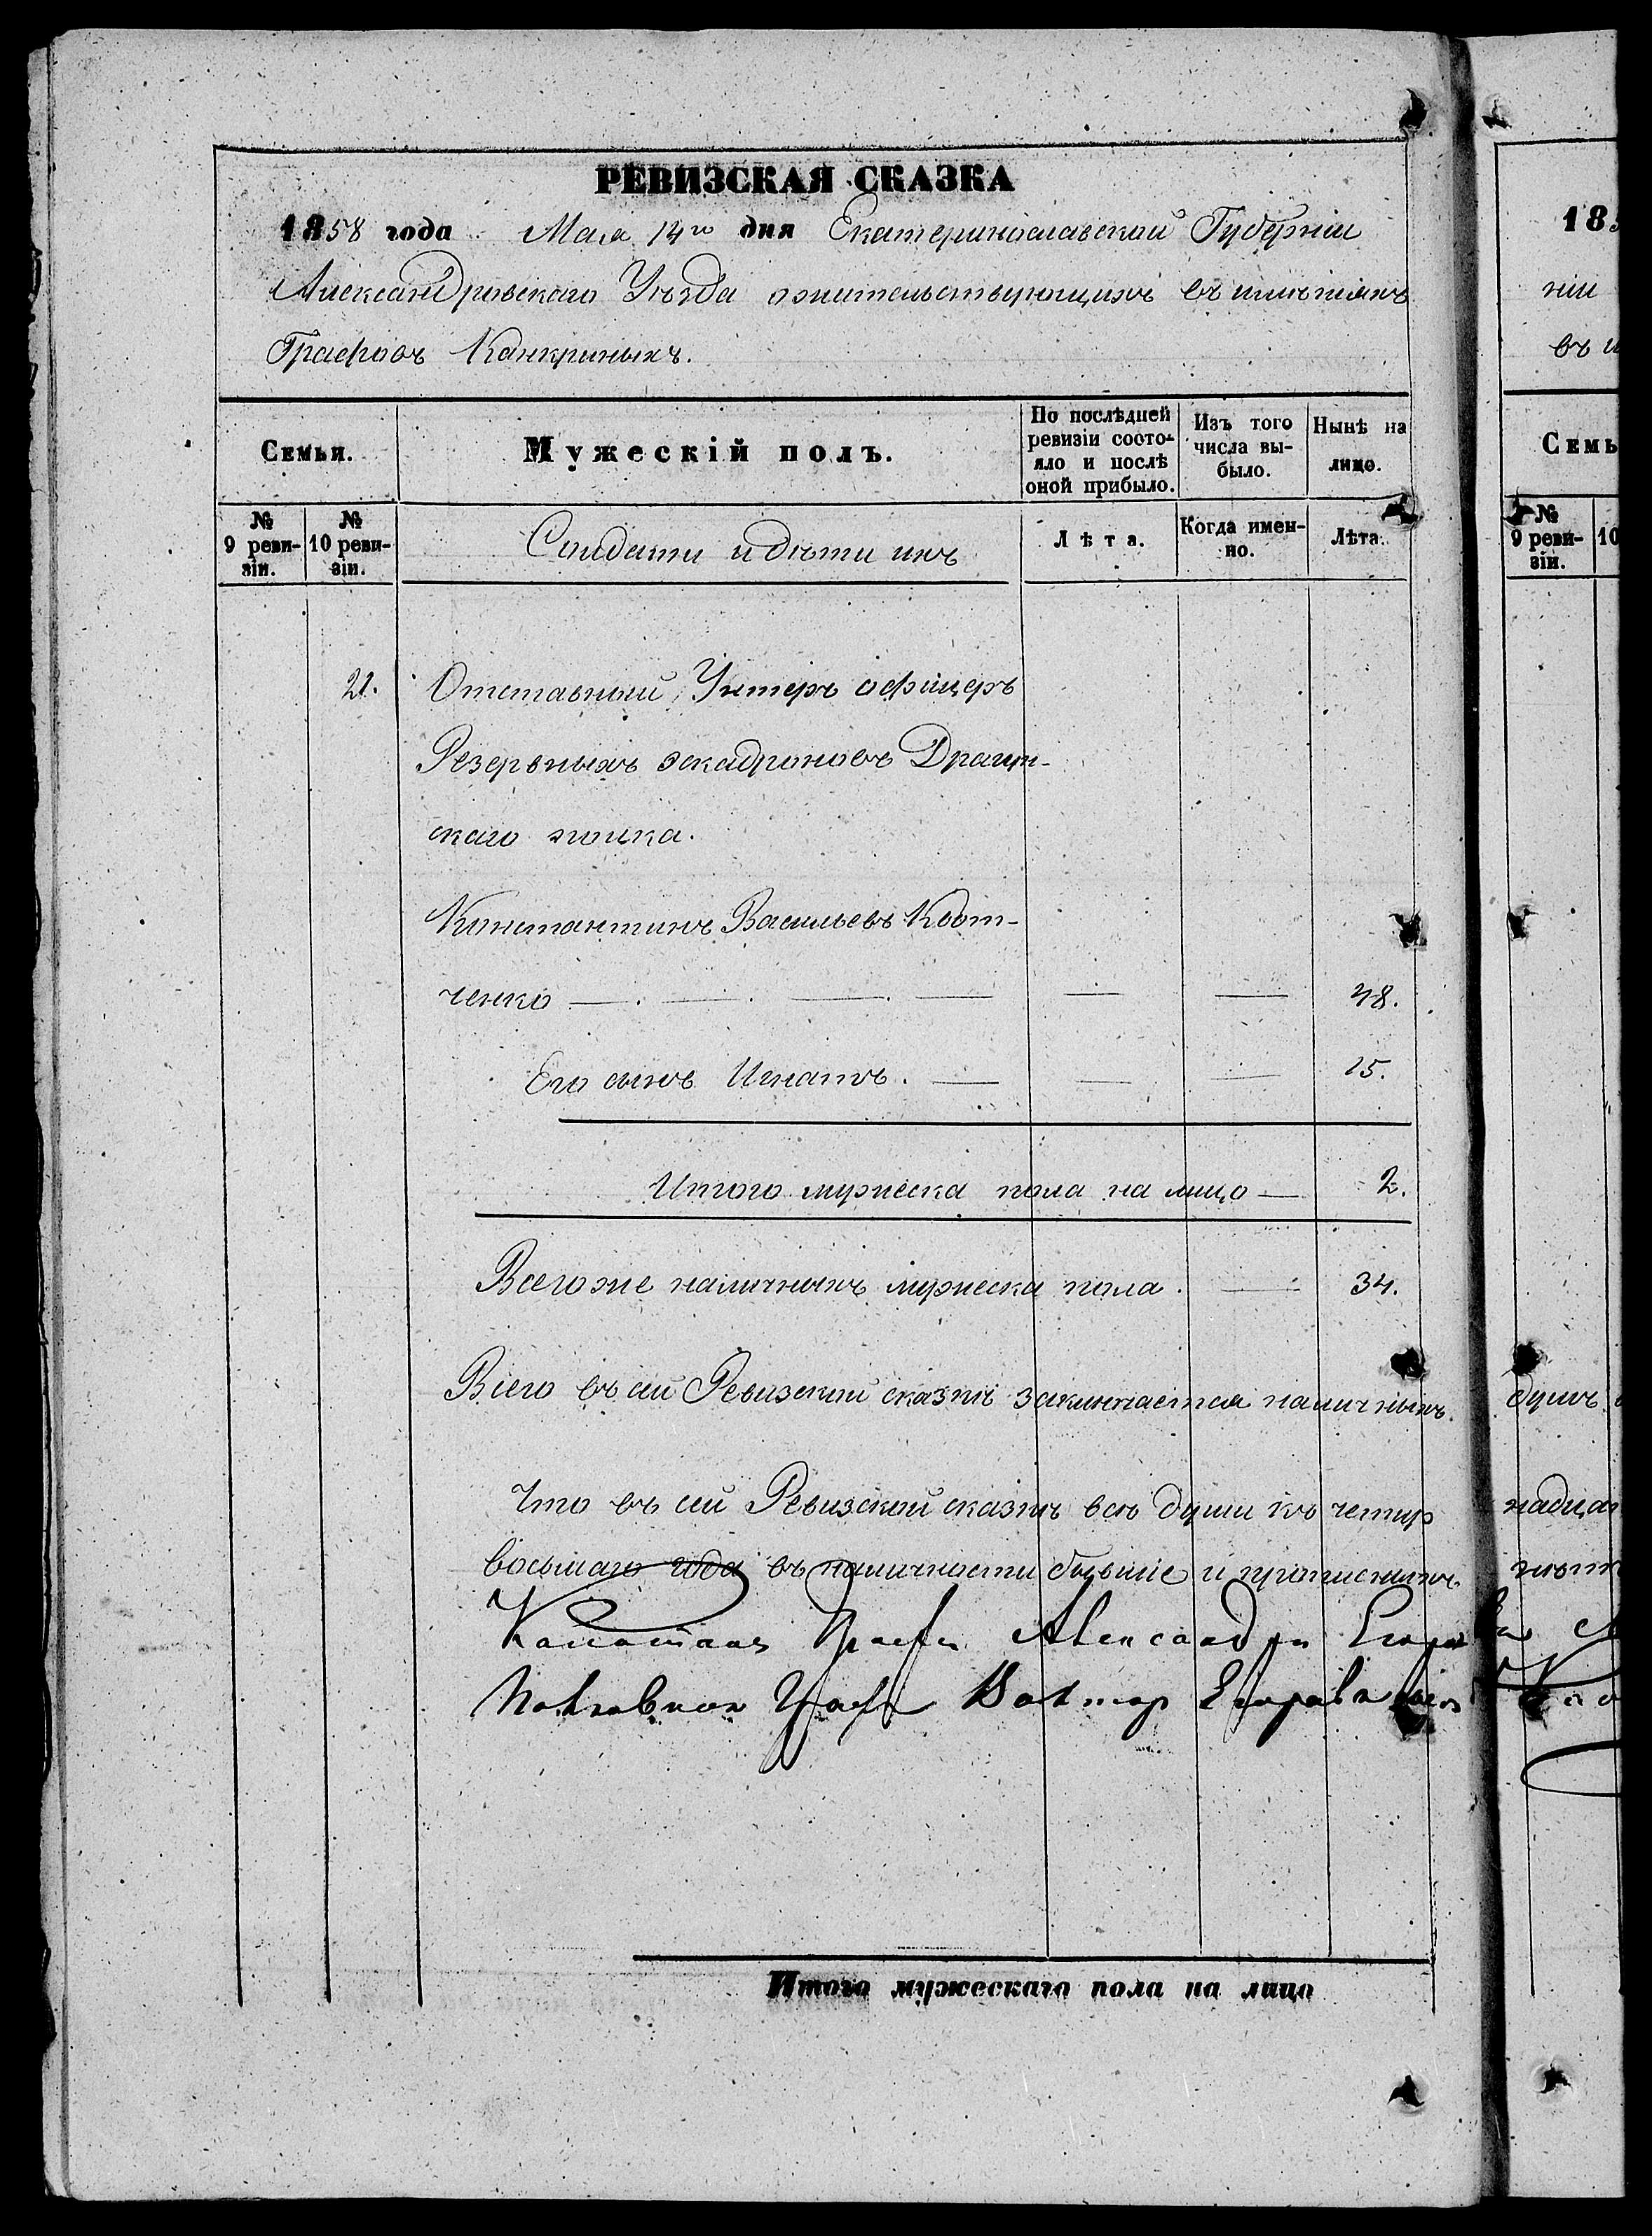 РЕВИЗСКАЯ СКАЗКА
1858 года Мая 14го дня Екатеринославской Губерніи
Александровскаго Уѣзда ожительствующихъ въ имѣніяхъ
Графовъ Канкриныхъ.
Семьи.
Мужескій полъ.
По послѣдней ревизіи состояло и послѣ оной прибыло.
Изъ того числа выбыло.
Нынѣ на лицо.
№ 9 ревизіи.
№ 10 ревизіи.
Солдаты и дѣти ихъ
Лѣта.
Когда именно.
Лѣта.
21. Отставный Унтеръ офицеръ
Резервныхъ эскадроновъ Драгун-
скаго полка.
Константинъ Васильевъ
ченко — — — — — — 48.
Его сынъ Игнатъ. — — — 15.
Итого мужеска пола на лицо — 2.
Всего же наличныхъ мужеска пола. — 34.
Всего въ сей Ревизской сказкѣ заключается наличныхъ
Что въ сей Ревизской сказкѣ всѣ души по четыр
восьмаго года въ наличности бывшіе и прописныхъ
Графъ Александръ
Полковникъ Графъ Викторъ
Итого мужескаго пола на лицо
185
ніи
въ и
Семь
№ 9 ревизіи.
10
душъ
надцат